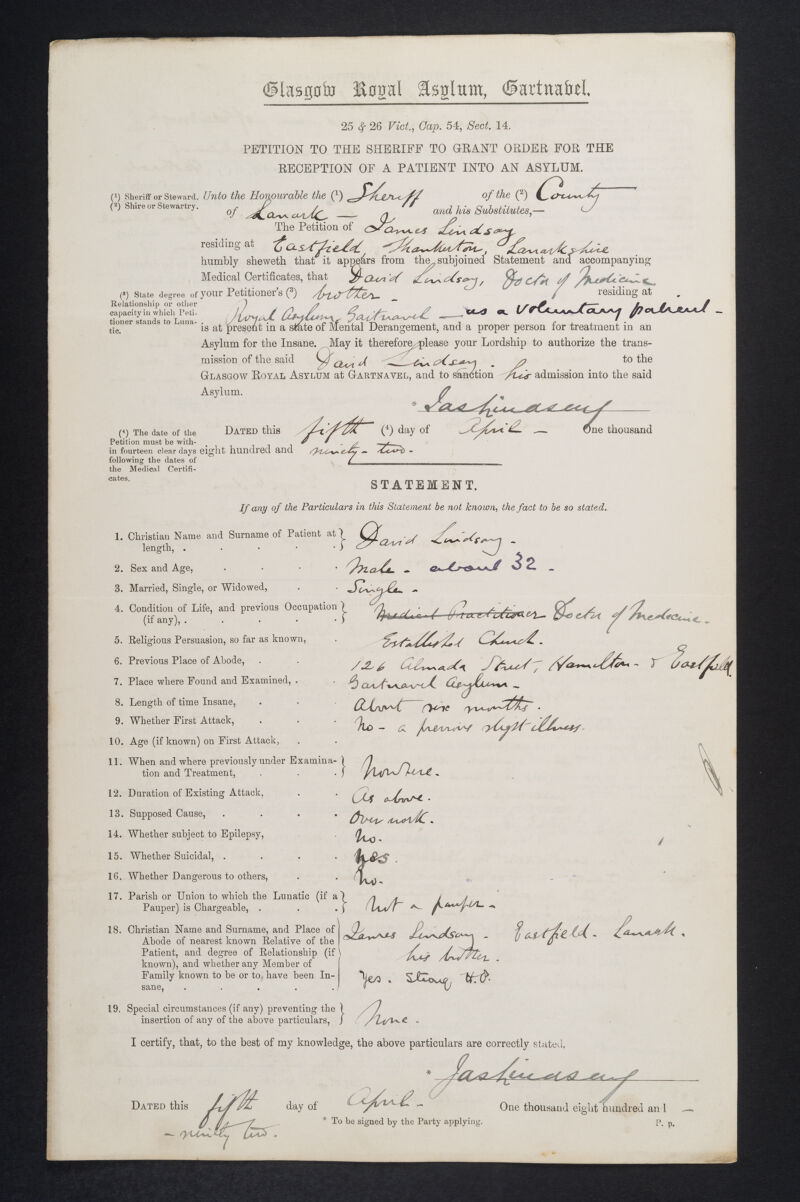 Glasgow Royal Asylum, Gartnabel.
25 & 26 Vict., Cap. 54, Sect. 14.
PETITION TO THE SHERIFF TO GRANT ORDER FOR THE
RECEPTION OF A PATIENT INTO AN ASYLUM.
(¹) Sheriff or Steward.
(²) Shire or Stewartry.
Unto the Honourable the (¹) Sheriff of the (²) County
of Lanark — and his Substitutes,—
The Petition of James Lindsay
residing at Eastfield, Thankerton, Lanarkshire
humbly sheweth that it appears from the subjoined Statement and accompanying
Medical Certificates, that David Lindsay, Doctor of Medicine
(³) State degree of
Relationship or other
capacity in which Peti-
tioner stands to Luna-
tic.
your Petitioner's (³) brother - residing at
Royal Asylum, Gartnavel — as a voluntary patient -
is at present in a state of Mental Derangement, and a proper person for treatment in an
Asylum for the Insane. May it therefore please your Lordship to authorize the trans-
mission of the said David Lindsay. to the
GLASGOW ROYAL ASYLUM at GARTNAVEL, and to sanction his admission into the said
Asylum.
* Jas Lindsay
(⁴) The date of the
Petition must be with-
in fourteen clear days
following the dates of
the Medical Certifi-
cates.
DATED this fifth (⁴) day of April — One thousand
eight hundred and ninety-two.
STATEMENT.
If any of the Particulars in this Statement be not known, the fact to be so stated.
1. Christian Name and Surname of Patient at
length, . David Lindsay -
2. Sex and Age, Male - about 32 -
3. Married, Single, or Widowed, Single -
4. Condition of Life, and previous Occupation
(if any), . Medical Practitioner Doctor of Medecine.
5. Religious Persuasion, so far as known, Established Church.
6. Previous Place of Abode, 126 Almada Street, Hamilton - & Eastfield
7. Place where Found and Examined, Gartnavel Asylum -
8. Length of time Insane, About six months.
9. Whether First Attack, No - a previous slight illness.
10. Age (if known) on First Attack,
11. When and where previously under Examina-
tion and Treatment, Nowhere.
12. Duration of Existing Attack, As above.
13. Supposed Cause, Over work.
14. Whether subject to Epilepsy, No.
15. Whether Suicidal, Yes.
16. Whether Dangerous to others, No.
17. Parish or Union to which the Lunatic (if a
Pauper) is Chargeable, Not a pauper -
18. Christian Name and Surname, and Place of
Abode of nearest known Relative of the
Patient, and degree of Relationship (if
known), and whether any Member of
Family known to be or to have been In-
sane,
James Lindsay - Eastfield - Lanark.
his brother.
Yes. Strong H.P.
19. Special circumstances (if any) preventing the
insertion of any of the above particulars, None.
I certify, that, to the best of my knowledge, the above particulars are correctly stated.
* Jas Lindsay
DATED this fifth day of April - One thousand eight hundred and —
- ninety two.
* To be signed by the Party applying.
P. p.